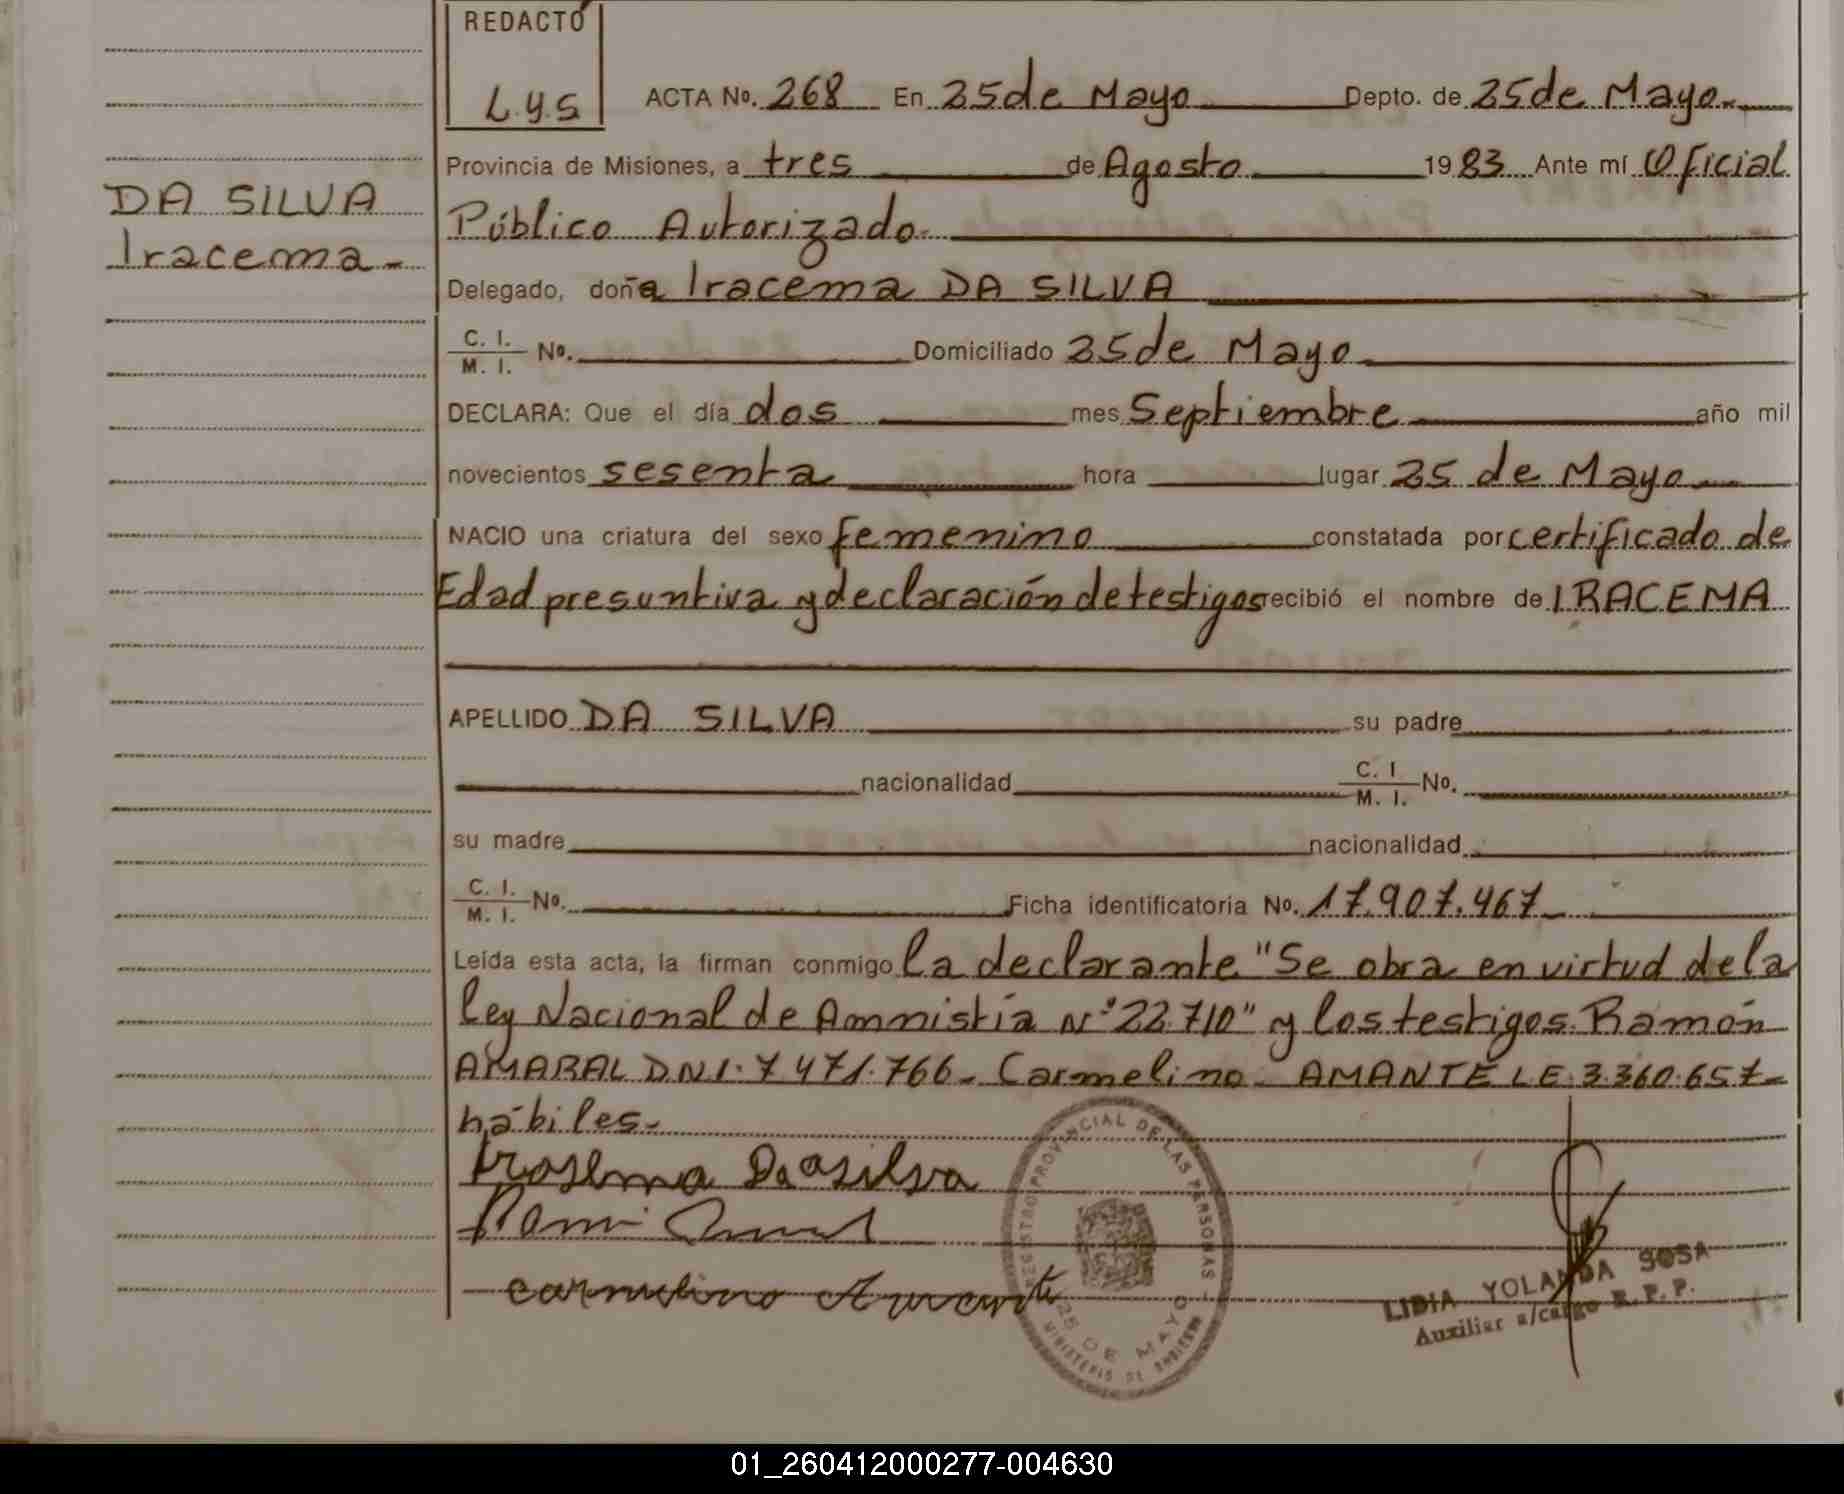 REDACTÓ
L.Y.S
ACTA No. 268 En 25 de Mayo Depto. de 25 de Mayo.
Provincia de Misiones, a tres de Agosto 1983 Ante mí Oficial
DA SILVA
Público Autorizado.
Iracema-
Delegado, doña Iracema DA SILVA
C. I. M. I. No. Domiciliado 25 de Mayo
DECLARA: Que el día dos mes Septiembre año mil
novecientos sesenta hora lugar 25 de Mayo
NACIO una criatura del sexo femenino constatada por certificado de
Edad presuntiva y declaración de testigos recibió el nombre de IRACEMA
APELLIDO DA SILVA su padre
nacionalidad C. I M. I. No.
su madre nacionalidad
C. I. M. I. No. Ficha identificatoria No. 17.907.467
Leída esta acta, la firman conmigo la declarante "Se obra en virtud de la
ley Nacional de Amnistía N° 22.710" y los testigos Ramón
AMARAL D.N.I. 7.471.766- Carmelino AMANTE L.E. 3.360.657-
hábiles-
Irasema Da silva
Carmelino Amante
REGISTRO PROVINCIAL DE LAS PERSONAS
25 DE MAYO
MINISTERIO DE GOBIERNO
LIDIA YOLANDA SOSA
Auxiliar a/cargo R. P. P.
01_260412000277-004630